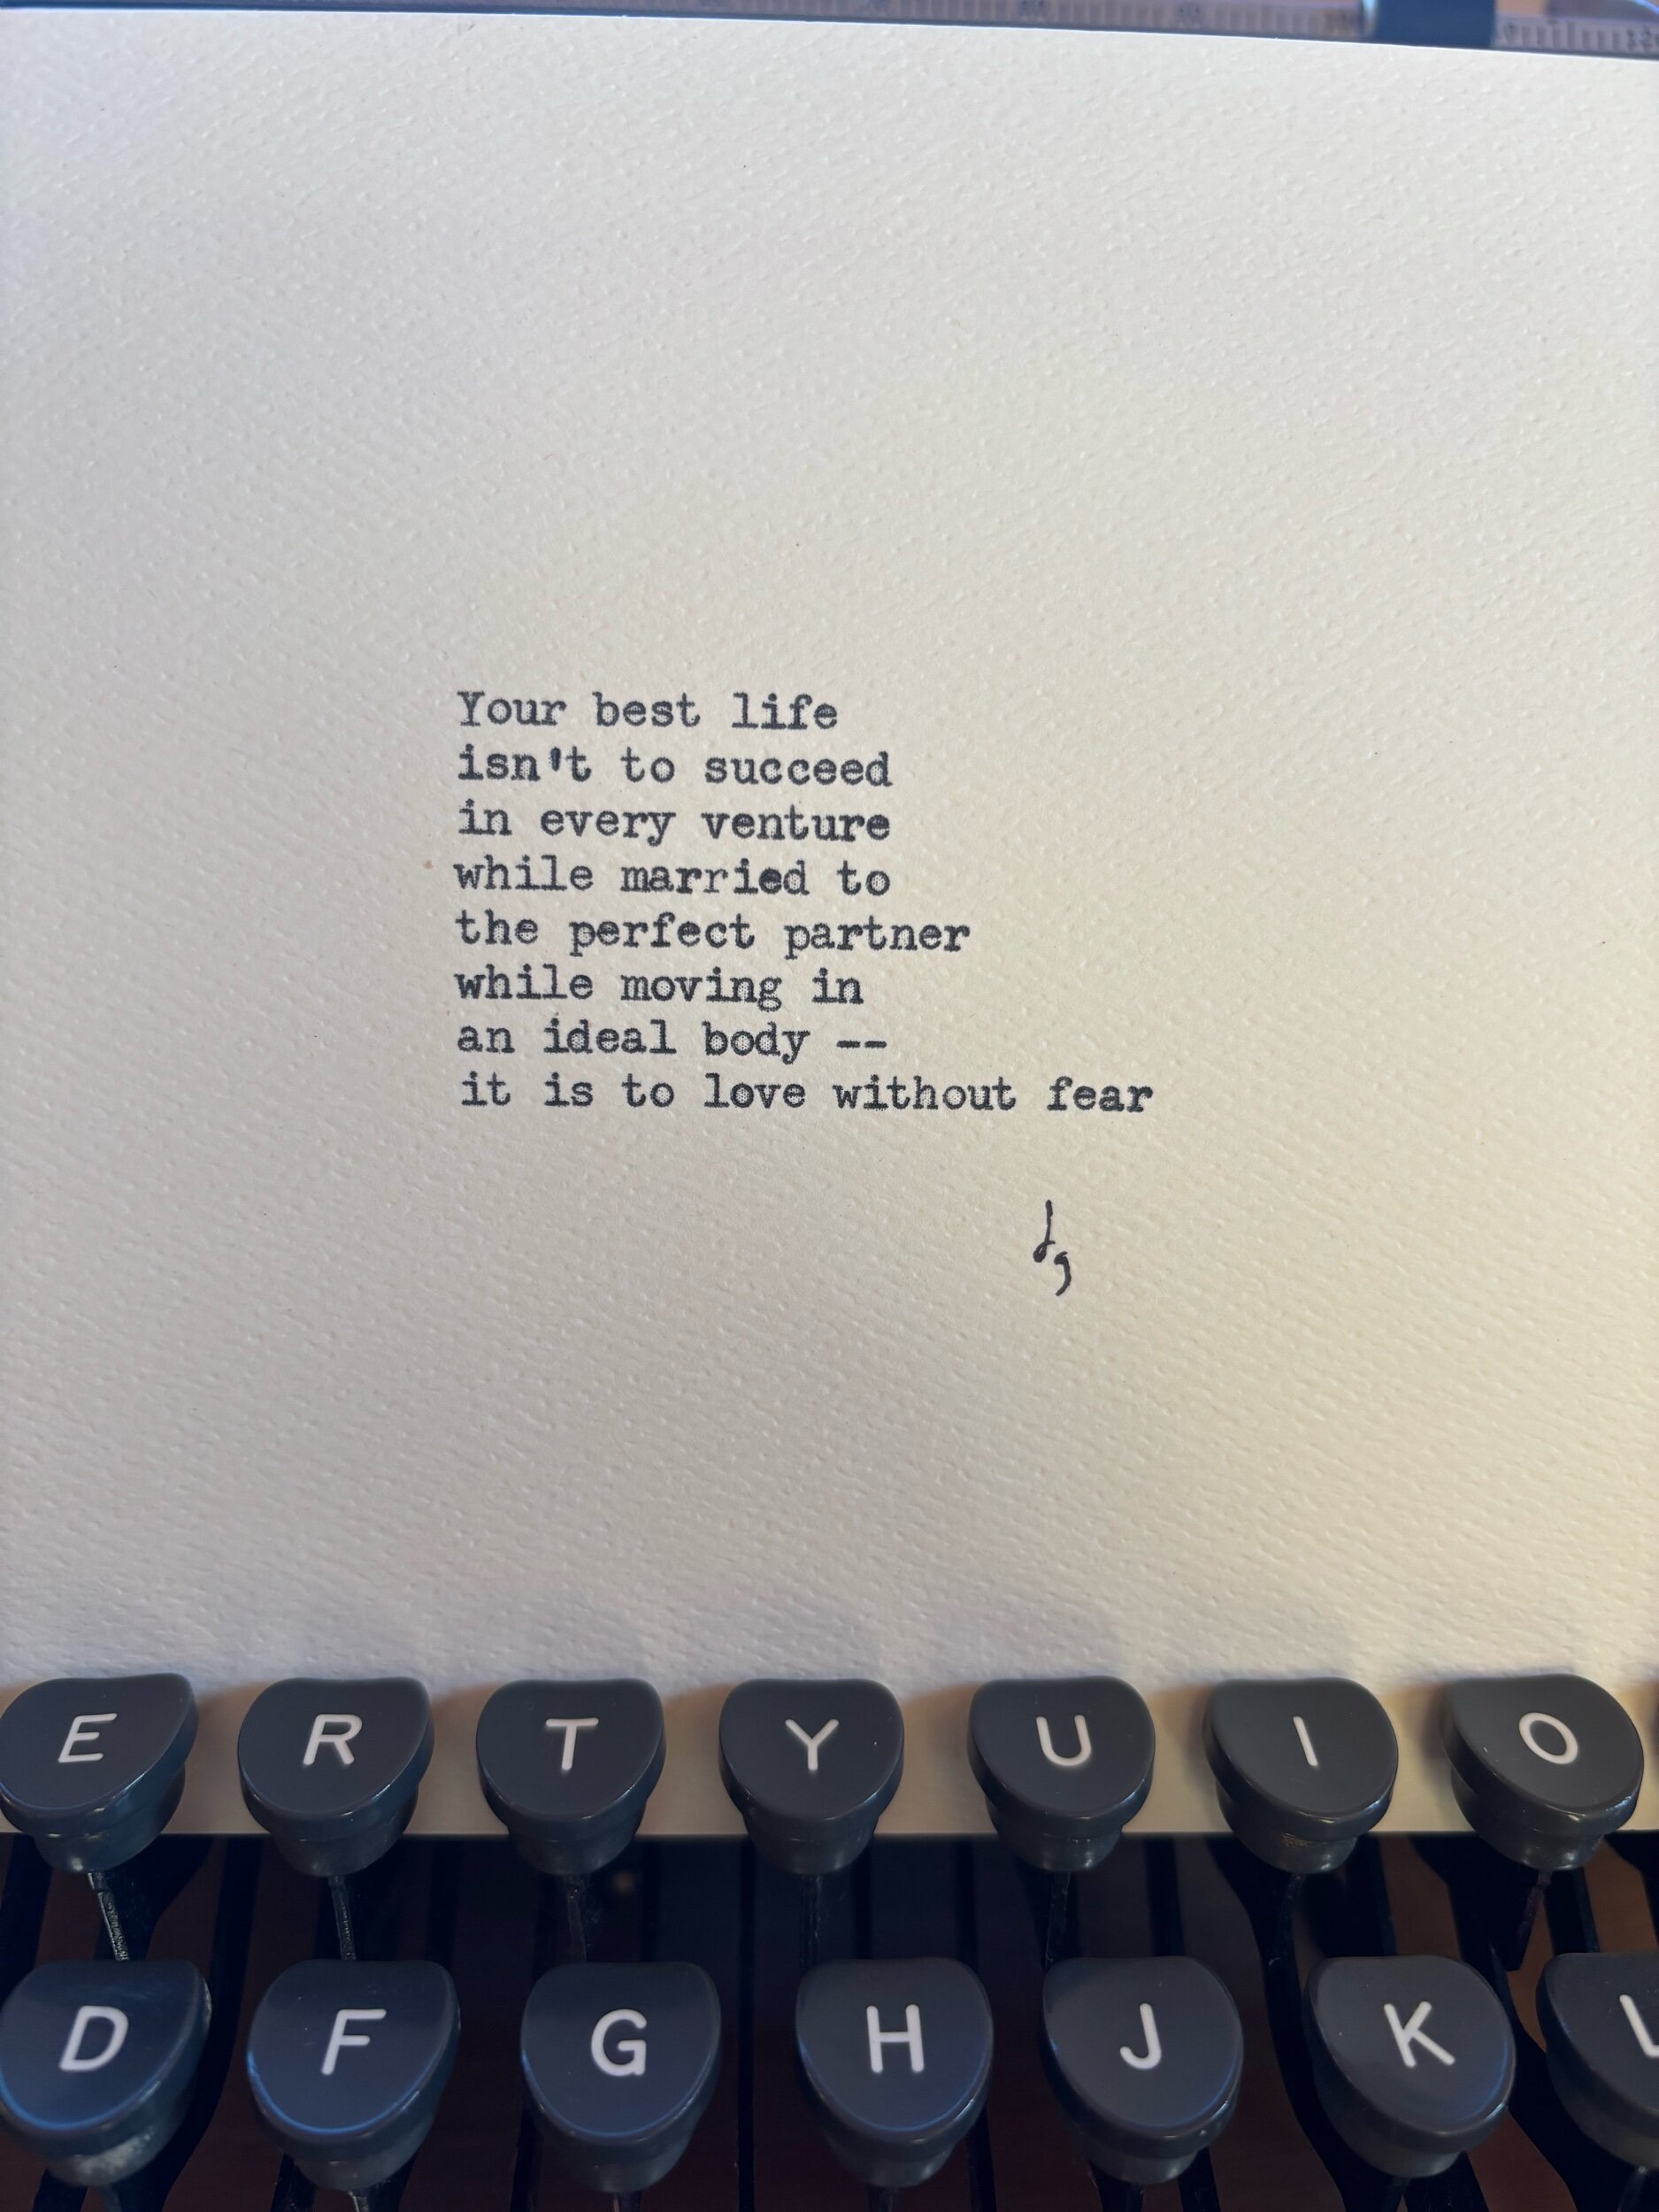 Your best life
isn't to succeed
in every venture
while married to
the perfect partner
while moving in
an ideal body --
it is to love without fear
dg
E R T Y U I O
D F G H J K L